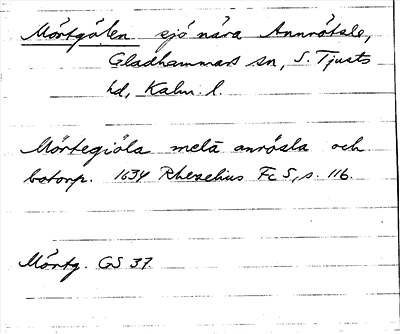 Mörtgölen sjö nära Annrötsle,
Gladhammars sn, S. Tjusts
hd, Kalm. l.
Mörtegiöla mela anrösla och
bstorp. 1634 Rhezelius Fc 5, s. 116.
Mörtg. GS 37